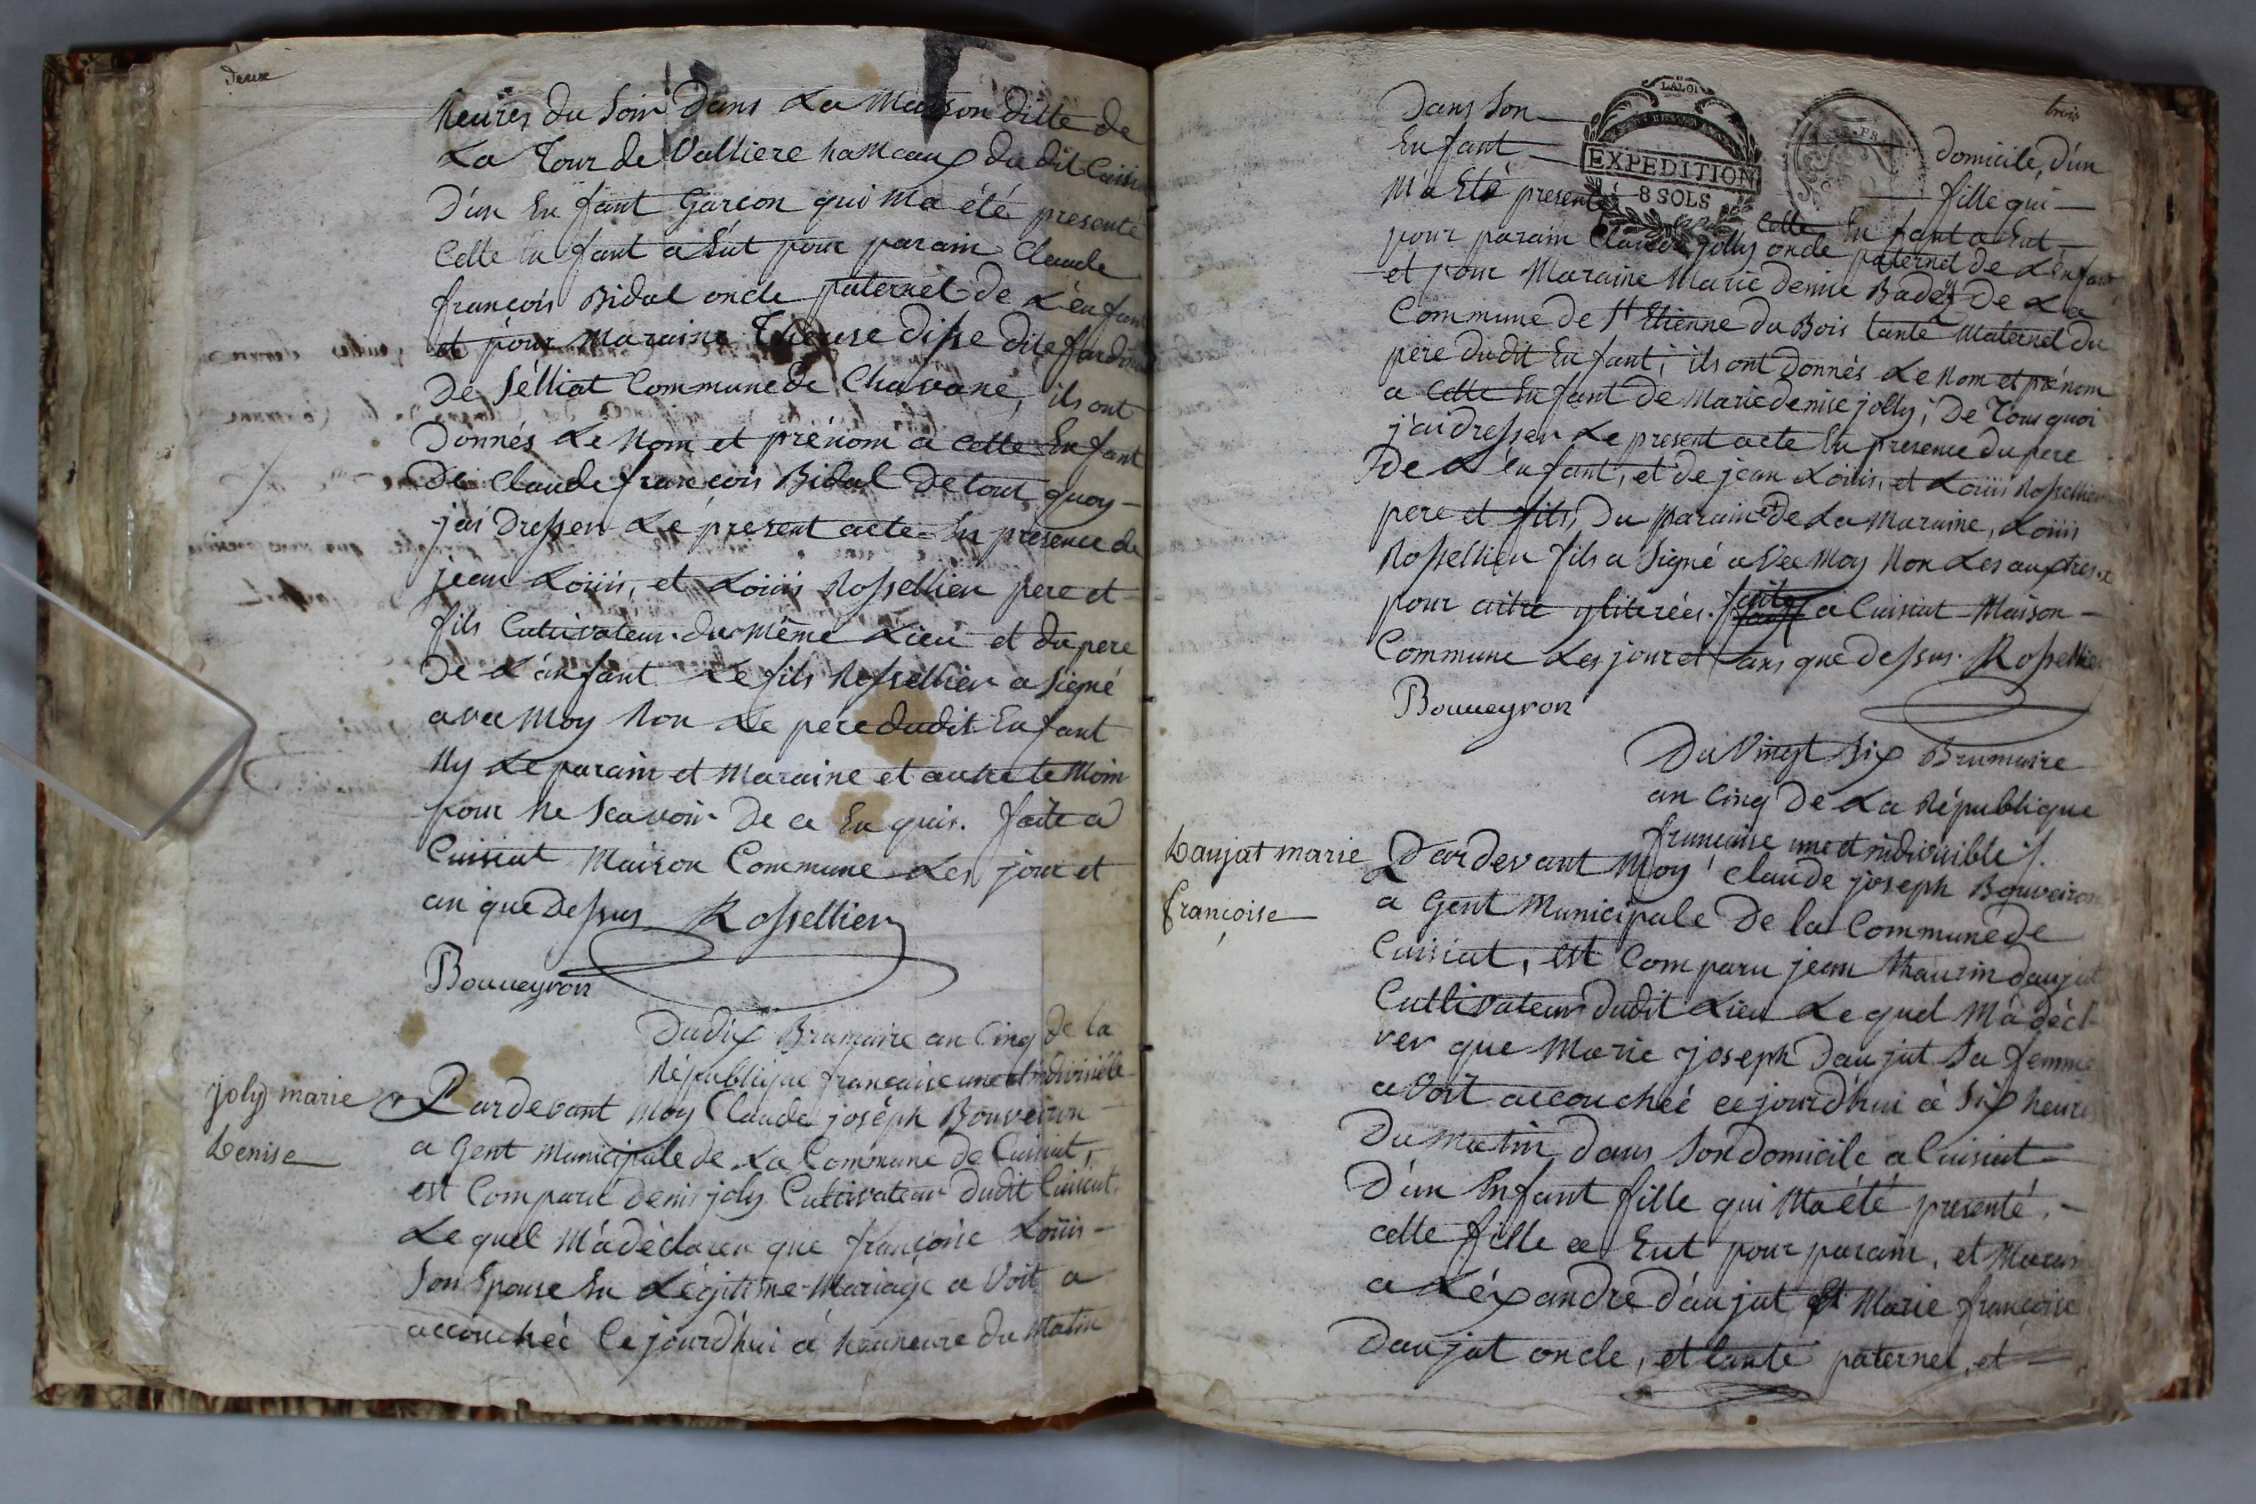 deux
heures du Soir Dans La Maison ditte de
La Tour de Valliere hameaux du dit Cuisi
D'un En fant Garcon qui m'a été presenté
Cette En fant a Eut pour parain Claude
françois Bidal oncle paternel de L'enfant
et pour Maraine Therese disse dite
De Sélliat Commune de Chavane, ils ont
Donnés Le Nom et prénom a Cette Enfant
De Claude françois Bidal De tout quoy -
j'ai Dresser Le present acte En presence de
jean Loüis, et Loüis Rossellier pere et
fils Cultivateur du même Lieu et du pere
De L'anfant Le fils Rossellier a Signé
avec Moy Non Le pere dudit Enfant
Ny Le parain et Maraine et autre te Moin
pour Ne Scavoir De ce En quis. faite a
Cuisiat Maison Commune Les jour et
an que Dessus Rossellier
Bouveyron
Du dix Brumaire an Cinq de la
République française une et indivisible
joly marie
denise
Pardevant Moy Claude joséph Bouveiron
a Gent Municipale de La Commune de Cuisiat,
est Comparu denis joly Cultivateur dudit Cuisiat.
Le quel M'a déclarer que françoise Loüis -
Son Epouse En Légitime Mariage a Voit a
accouchéé Ce jourd'hui a heure du Matin
trois
Dans Son — domicile, d'un
Enfant — fille qui —
M'a Eté presenté Cette En fant a Eut —
pour parain Claude jolly oncle paternel de L'enfant
et pour Maraine Marie denise Badez De La
Commune de St Etienne du Bois tante Maternel du
pere dudit Enfant; ils ont Donnés Le Nom et prénom
a Cette Enfant de Marie denise jolly; De Tout quoi
j'ai dresser Le present acte En presence du pere
De L'enfant, et de jean Loüis, et Loüis Rossellier
pere et fils, Du parain et de La Maraine, Loüis
Rossellier fils a Signé a Vec Moy Non Les auxtres
pour aitre ylitérées. faite a Cuisiat Maison —
Commune Les jour et ans que dessus. Rossellier
Bouveyron
Du Vingt Six Brumaire
an Cinq De La République
française une et indivisible /.
daujat marie
françoise
Pardevant Moy Claude joseph Bouveiron
a Gent Municipale De la Commune de
Cuisiat, est Comparu jean Maurin daujat
Cultivateur dudit Lieu Le quel M'a décl-
rer que Marie joseph Daujat Sa femme
a Voit accouchéé ce jourd'hui à Six heures
Du Matin dans Son domicile a Cuisiat
D'un Enfant fille qui M'a été presenté. -
cette fille a Eut pour parain, et Marain
a Léxandre d'aujat Et Marie françoise
Daujat oncle, et tante paternel, et —
EXPEDITION
8 SOLS
LA LOI